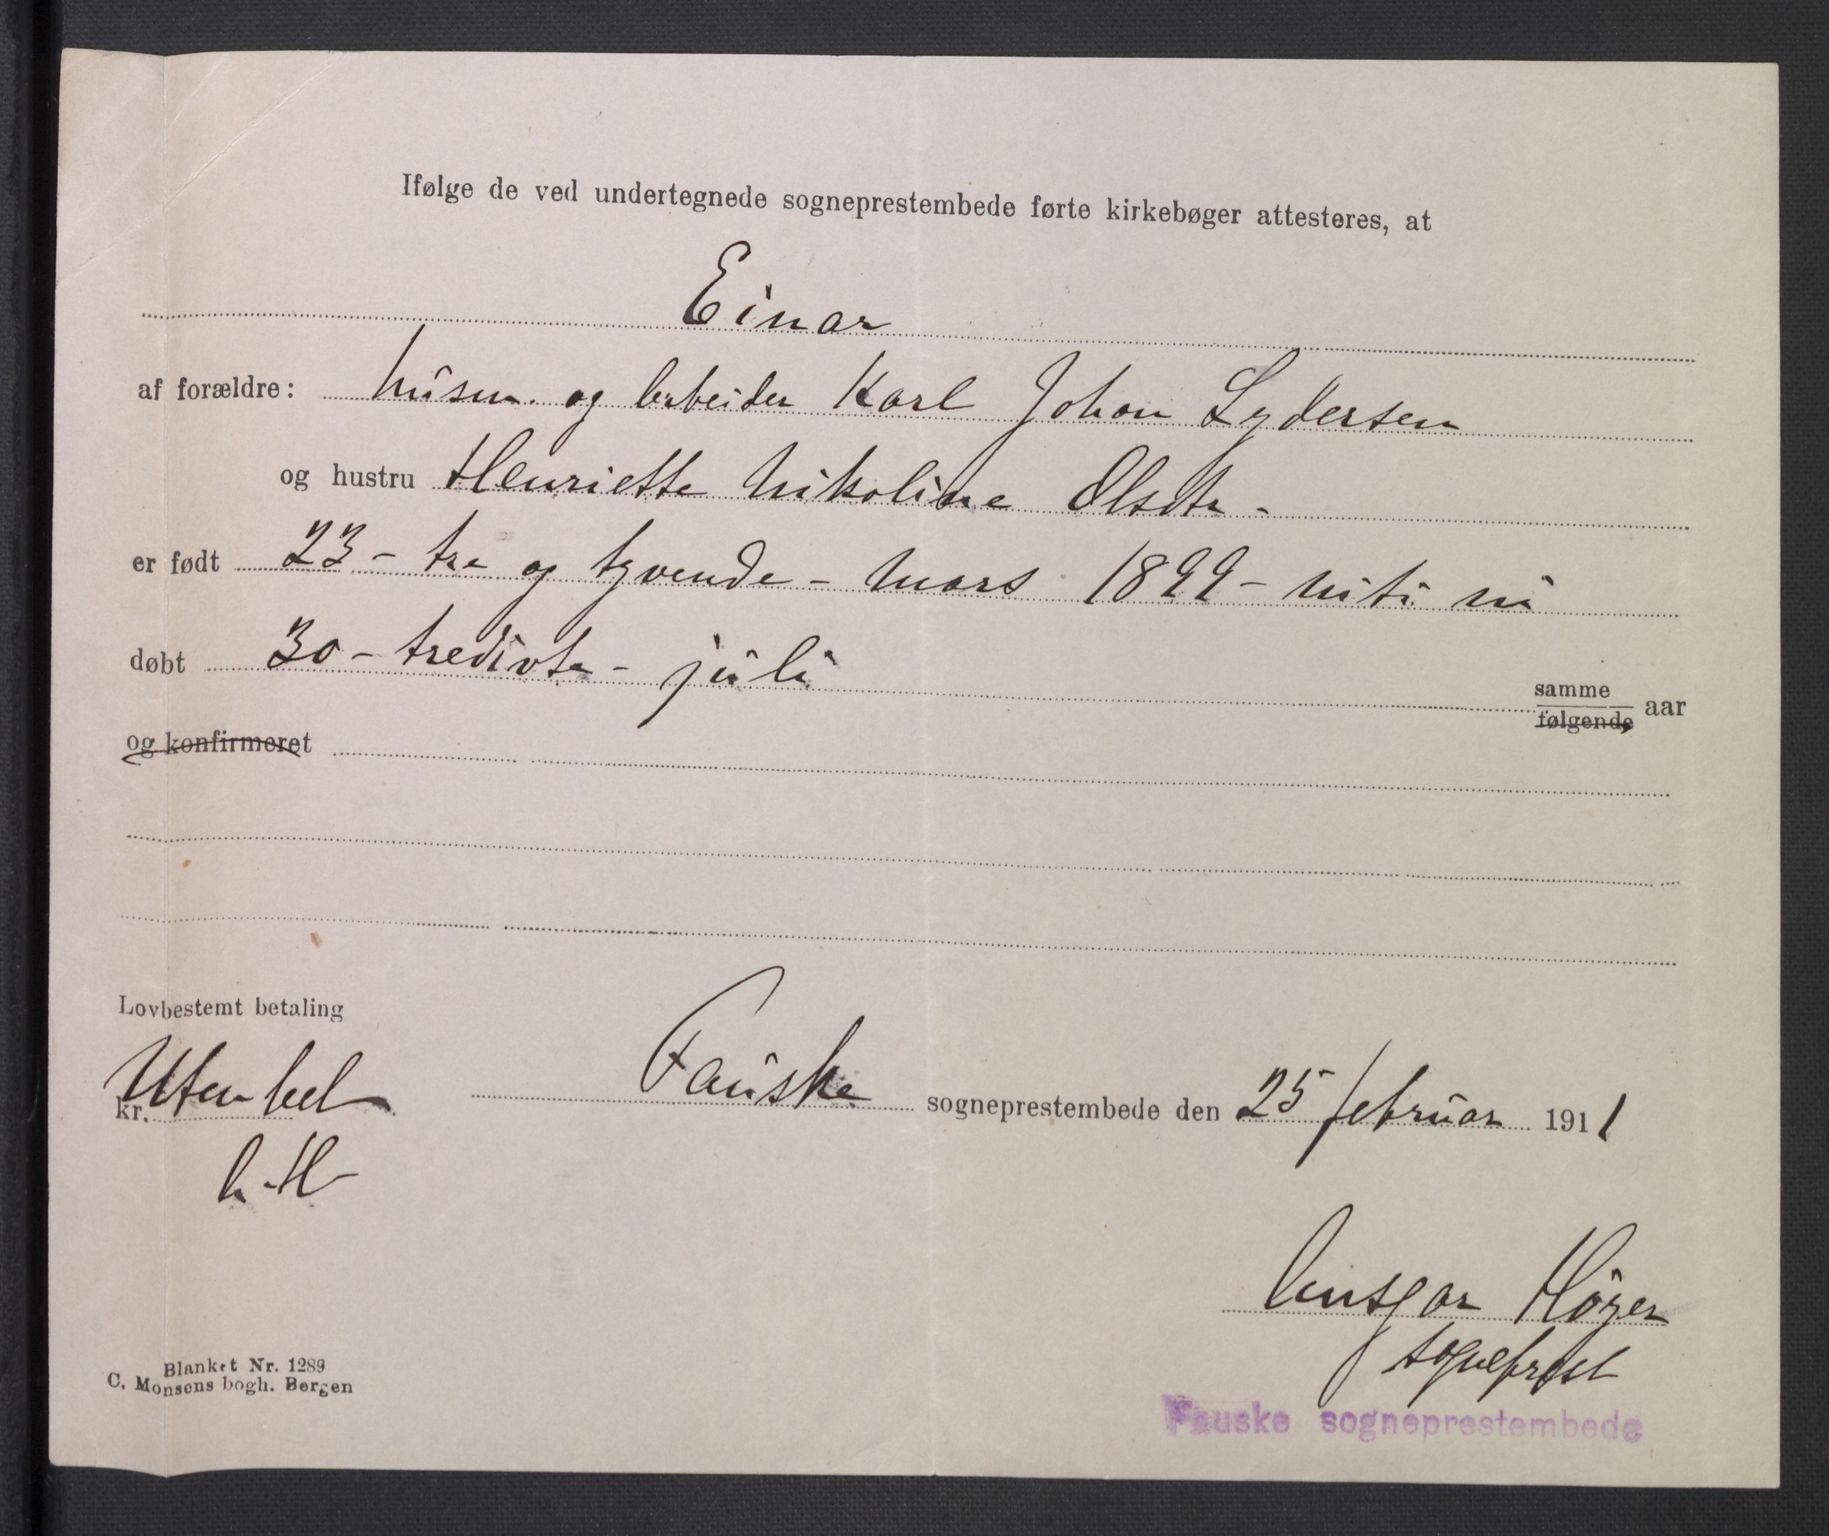 Ifølge de ved undertegnede sogneprestembede førte kirkebøger attesteres, at
Einar
af forældre: husm. og arbeider Karl Johan Lydersen
og hustru Henriette Nikoline Olsdtr.
er født 23 - tre og tyvende - mars 1899 - niti ni
døbt 30 - tredivte - juli samme
følgende aar
og konfirmeret
Lovbestemt betaling
kr. Uten bet
A. H
Fauske sogneprestembede den 25 februar 1911
Ansgar Høyer
sogneprest
Fauske sogneprestembede
Blanket Nr. 1289
C. Monsens bogh. Bergen